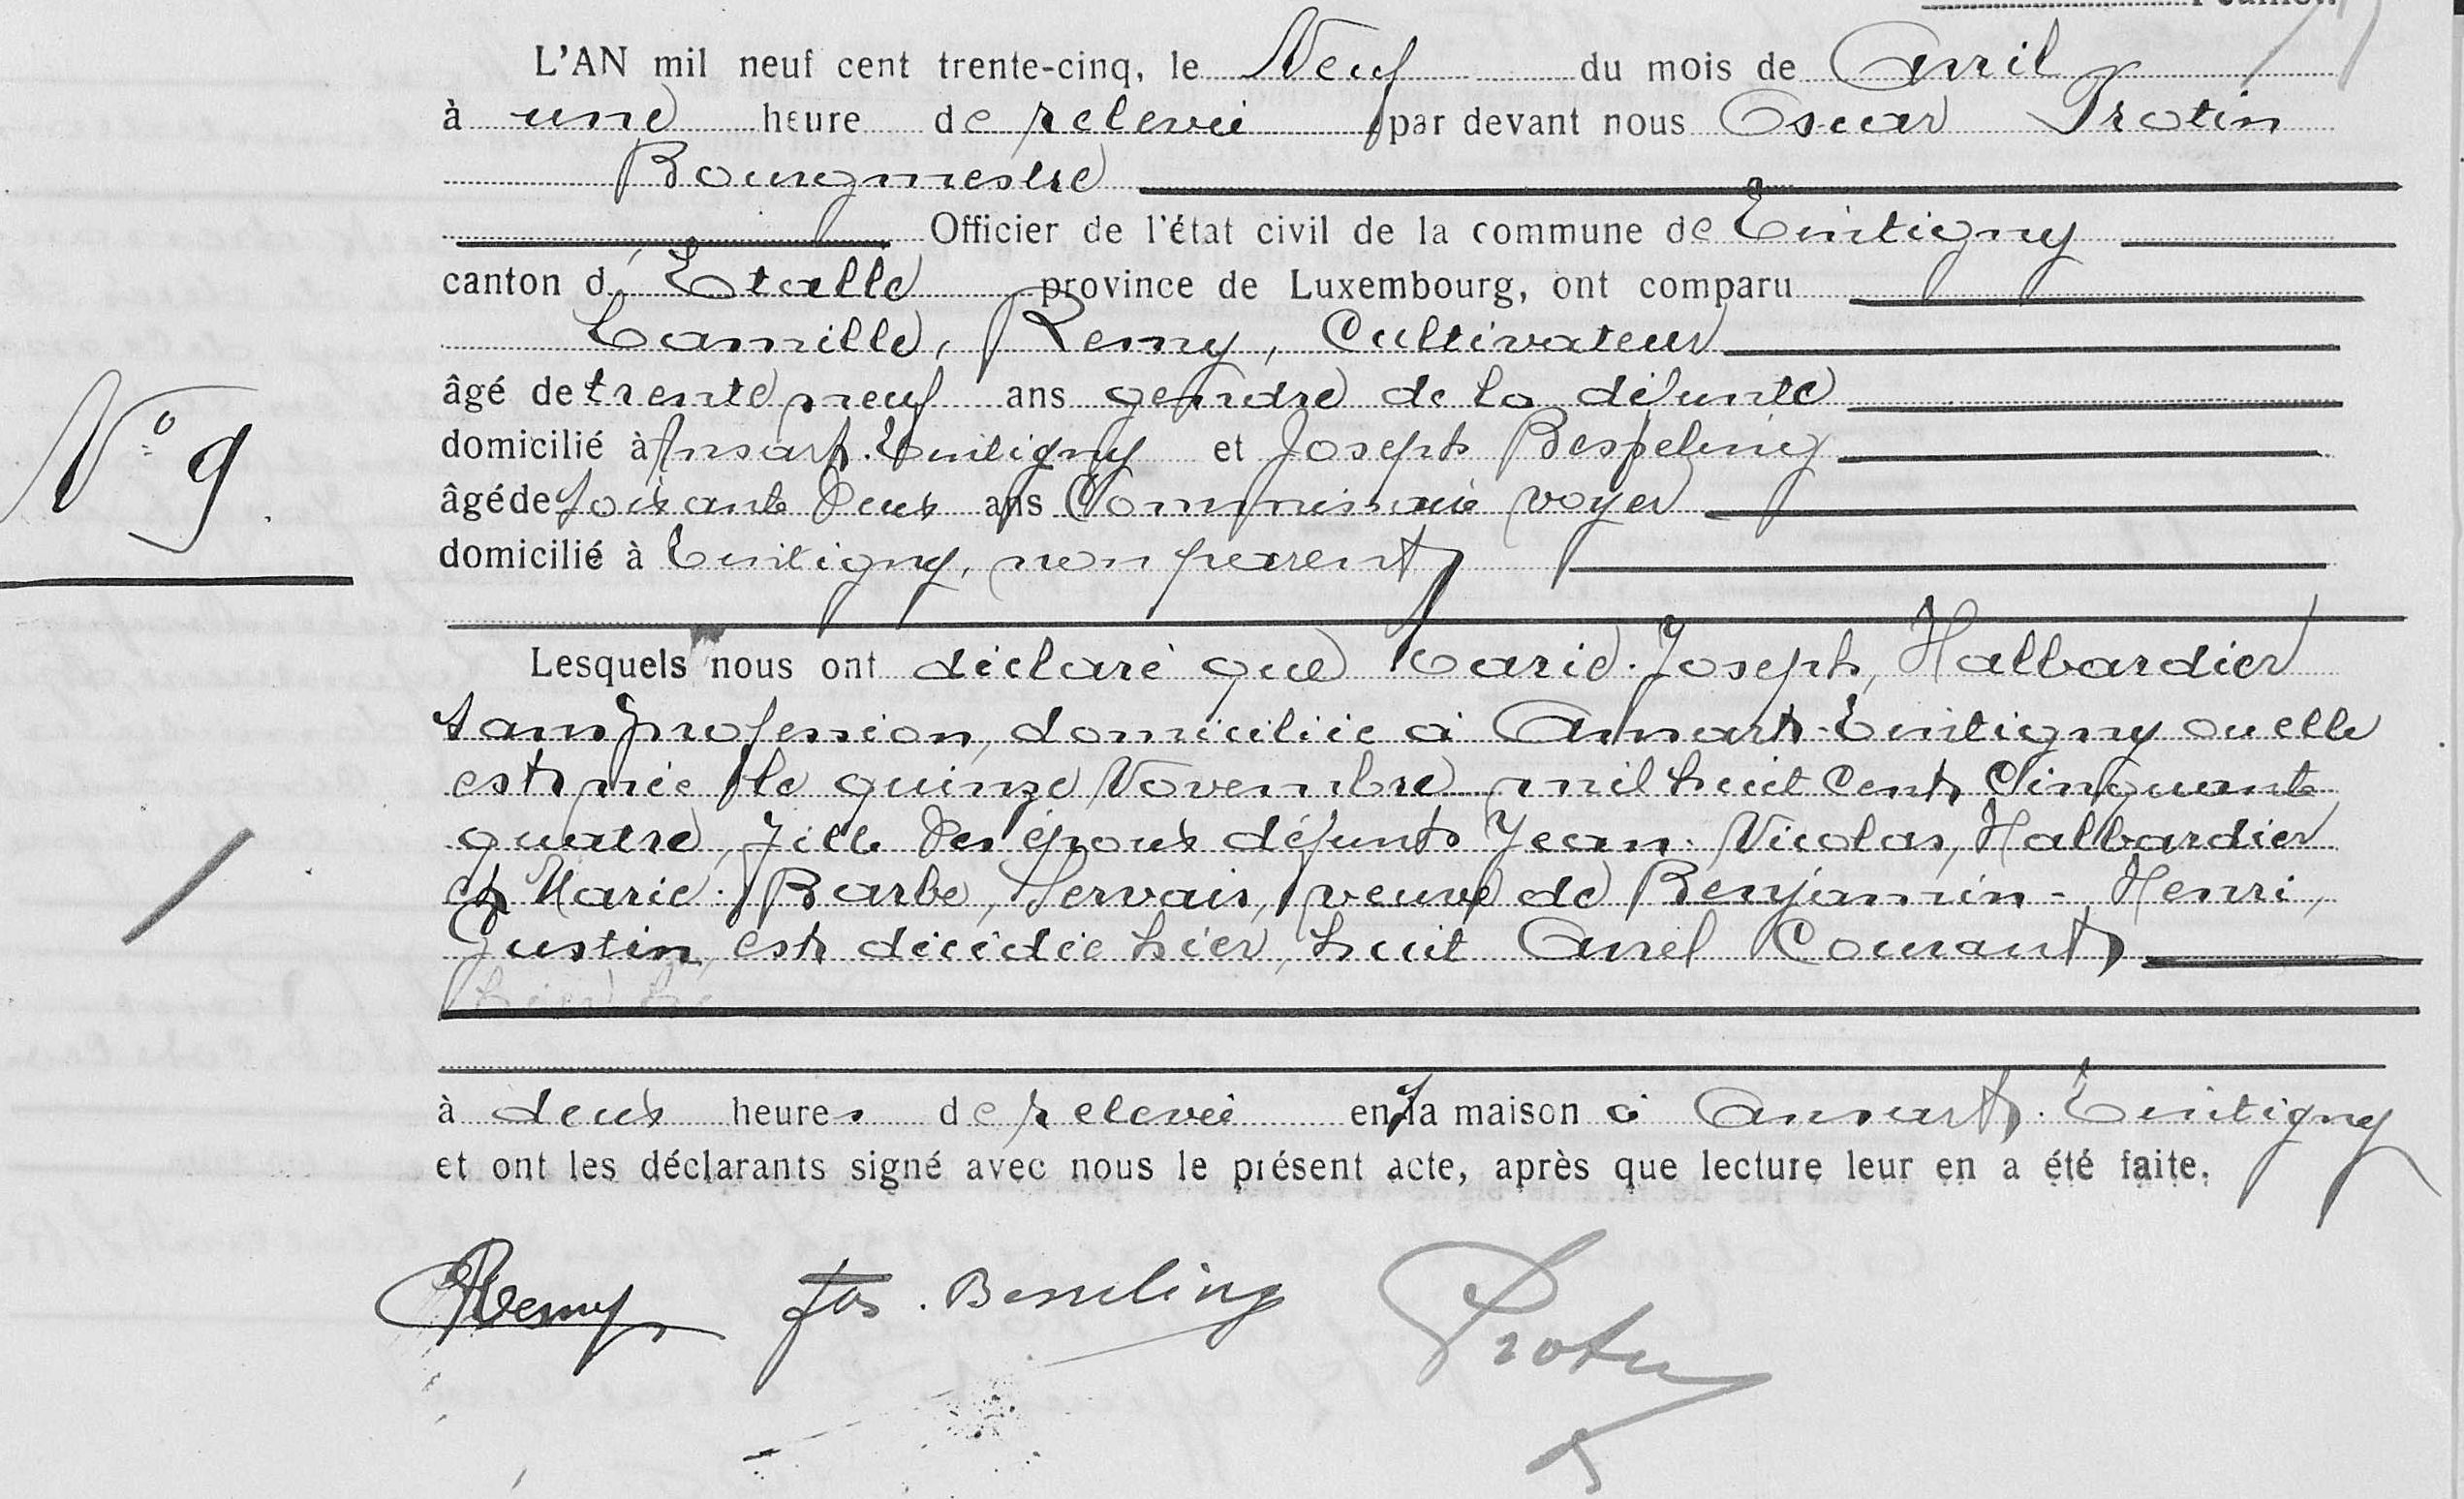 L'AN mil neuf cent trente-cinq, le Neuf du mois de Avril
à une heure de relevée par devant nous Oscar Protin
Bourgmestre
Officier de l'état civil de la commune de Tintigny
canton d'Etalle province de Luxembourg, ont comparu
Camille, Remy, Cultivateur
âgé de trente neuf ans gendre de la défunte
domicilié à Ansart. Tintigny et Joseph Bespeling
âgé de soixante deux ans Commissaire voyer
domicilié à Tintigny, non parent
N° 9.
Lesquels nous ont déclaré que Marie. Joseph, Halbardier
sans profession, domiciliée à Ansart-Tintigny ou elle
est née le quinze Novembre mil huit Cent Cinquante
quatre, fille des époux défunts Jean. Nicolas, Halbardier
et Marie. Barbe, Servais, veuve de Benjamin - Henri,
Justin, est décédée hier, huit Avril Courant
à deux heures de relevée en sa maison à Ansart. Tintigny
et ont les déclarants signé avec nous le présent acte, après que lecture leur en a été faite.
CRemy Jos. Protin